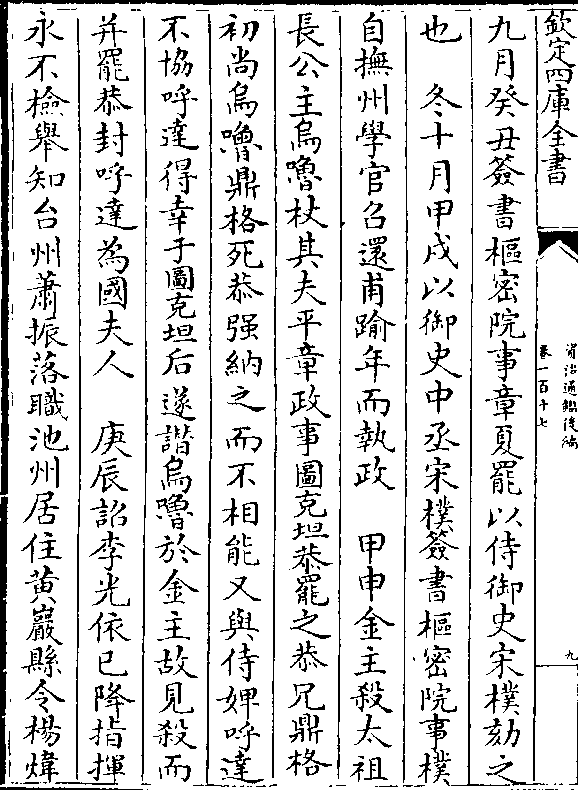 欽定四庫全書
資治通鑑後編
卷一百十七
九
九月癸丑簽書樞密院事章夏罷以侍御史宋樸劾之
也　冬十月甲戌以御史中丞宋樸簽書樞密院事樸
自撫州學官召還甫踰年而執政　甲申金主殺太祖
長公主烏嚕杖其夫平章政事圖克坦恭罷之恭兄鼎格
初尚烏嚕鼎格死恭强納之而不相能又與侍婢呼達
不協呼達得幸于圖克坦后遂譖烏嚕於金主故見殺而
并罷恭封呼達為國夫人　庚辰詔李光依已降指揮
永不檢舉知台州蕭振落職池州居住黃巖縣令楊煒